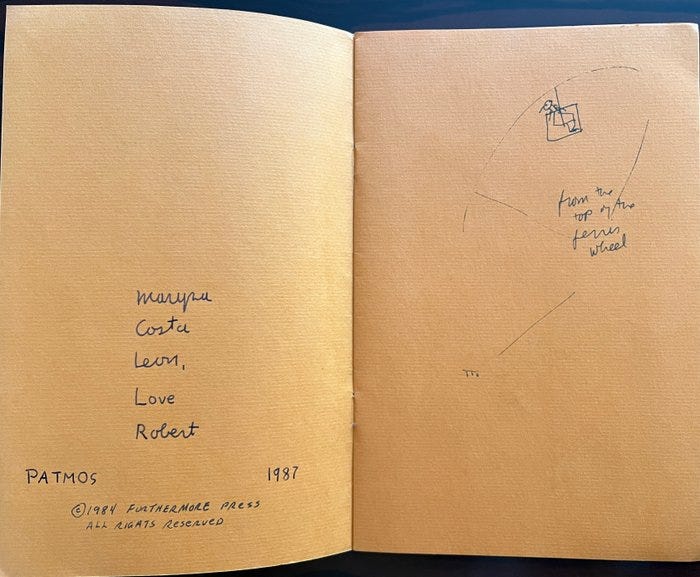 Maryse
Costa
Leon,
Love
Robert
PATMOS 1987
©1984 FURTHERMORE PRESS
ALL RIGHTS RESERVED
from the
top of the
ferris
wheel